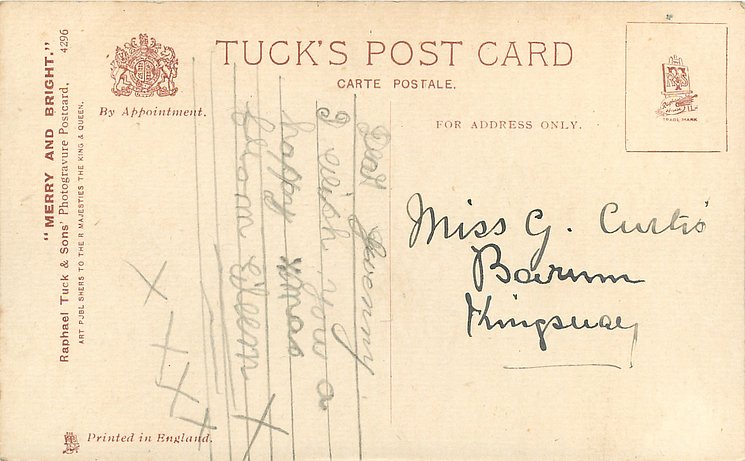 TUCK'S POST CARD
CARTE POSTALE.
By Appointment.
FOR ADDRESS ONLY.
TRADE MARK
"MERRY AND BRIGHT."
Raphael Tuck & Sons' Photogravure Postcard, 4296
ART PUBLISHERS TO THEIR MAJESTIES THE KING & QUEEN.
Printed in England.
Dear Gwenny
I wish you a
happy Xmas
from Eileen X
X X X X
Miss G. Curtis
Barum
Kingsway